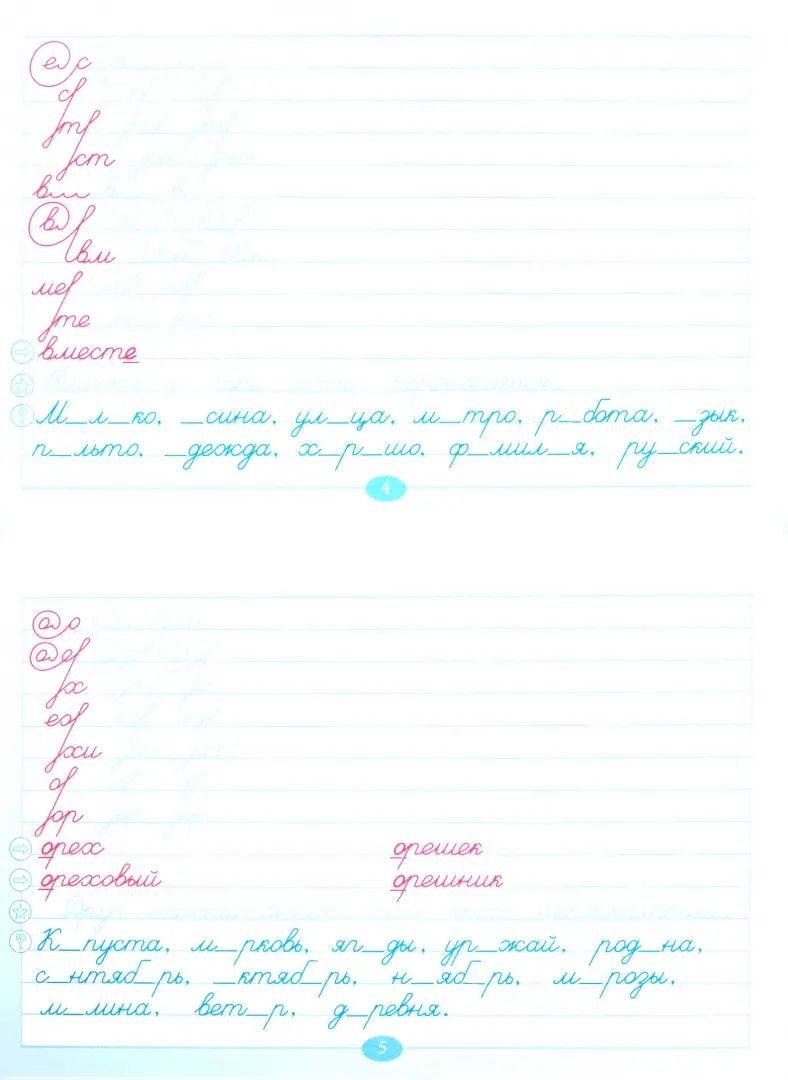 ес
с
т
ст
вм
в
вм
ме
те
вместе
М_л_ко, _сина, ул_ца, м_тро, р_бота, _зык,
п_льто, _дежда, х_р_шо, ф_мил_я, ру_ский.
4
о
х
ех
хи
о
ор
орех орешек
ореховый орешник
К_пуста, м_рковь, яг_ды, ур_жай, род_на,
с_нтяб_рь, _ктяб_рь, н_яб_рь, м_розы,
м_лина, вет_р, д_ревня.
5